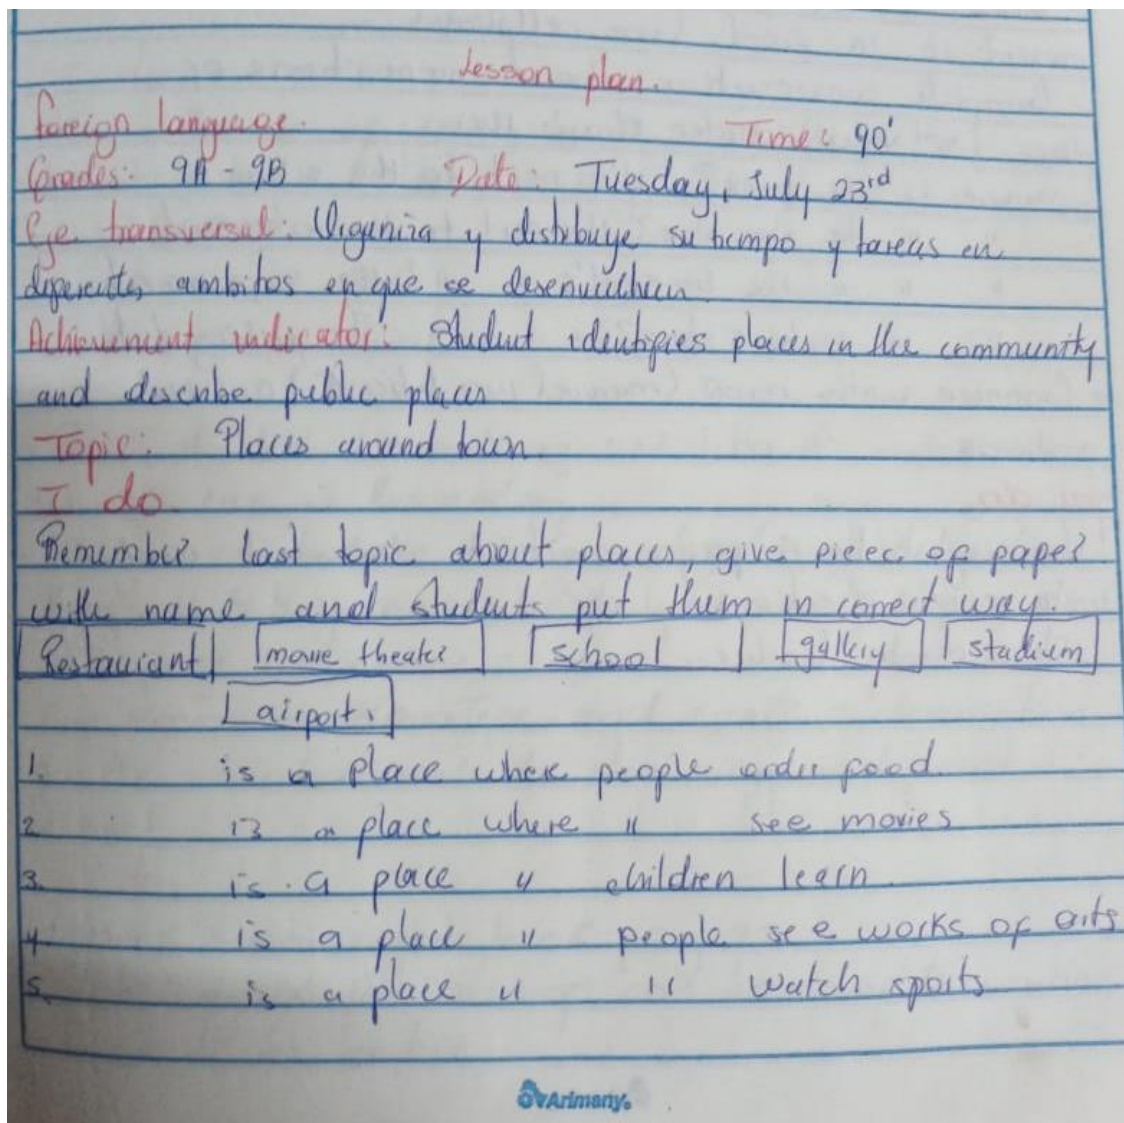 Lesson plan.
foreign language. Time: 90'
Grades: 9A - 9B Date: Tuesday, July 23rd
Eje transversal: Organiza y distribuye su tiempo y tareas en
diferentes ambitos en que se desenvuelven
Achievement indicator: Student identifies places in the community
and describe public places
Topic: Places around town.
I do.
Remember last topic about places, give piece of paper
with name and students put them in correct way.
Restaurant movie theater school gallery stadium
airport.
1. is a place where people order food.
2. is a place where " see movies
3. is a place " children learn
4. is a place " people see works of arts
5. is a place " " watch sports
Arimany.